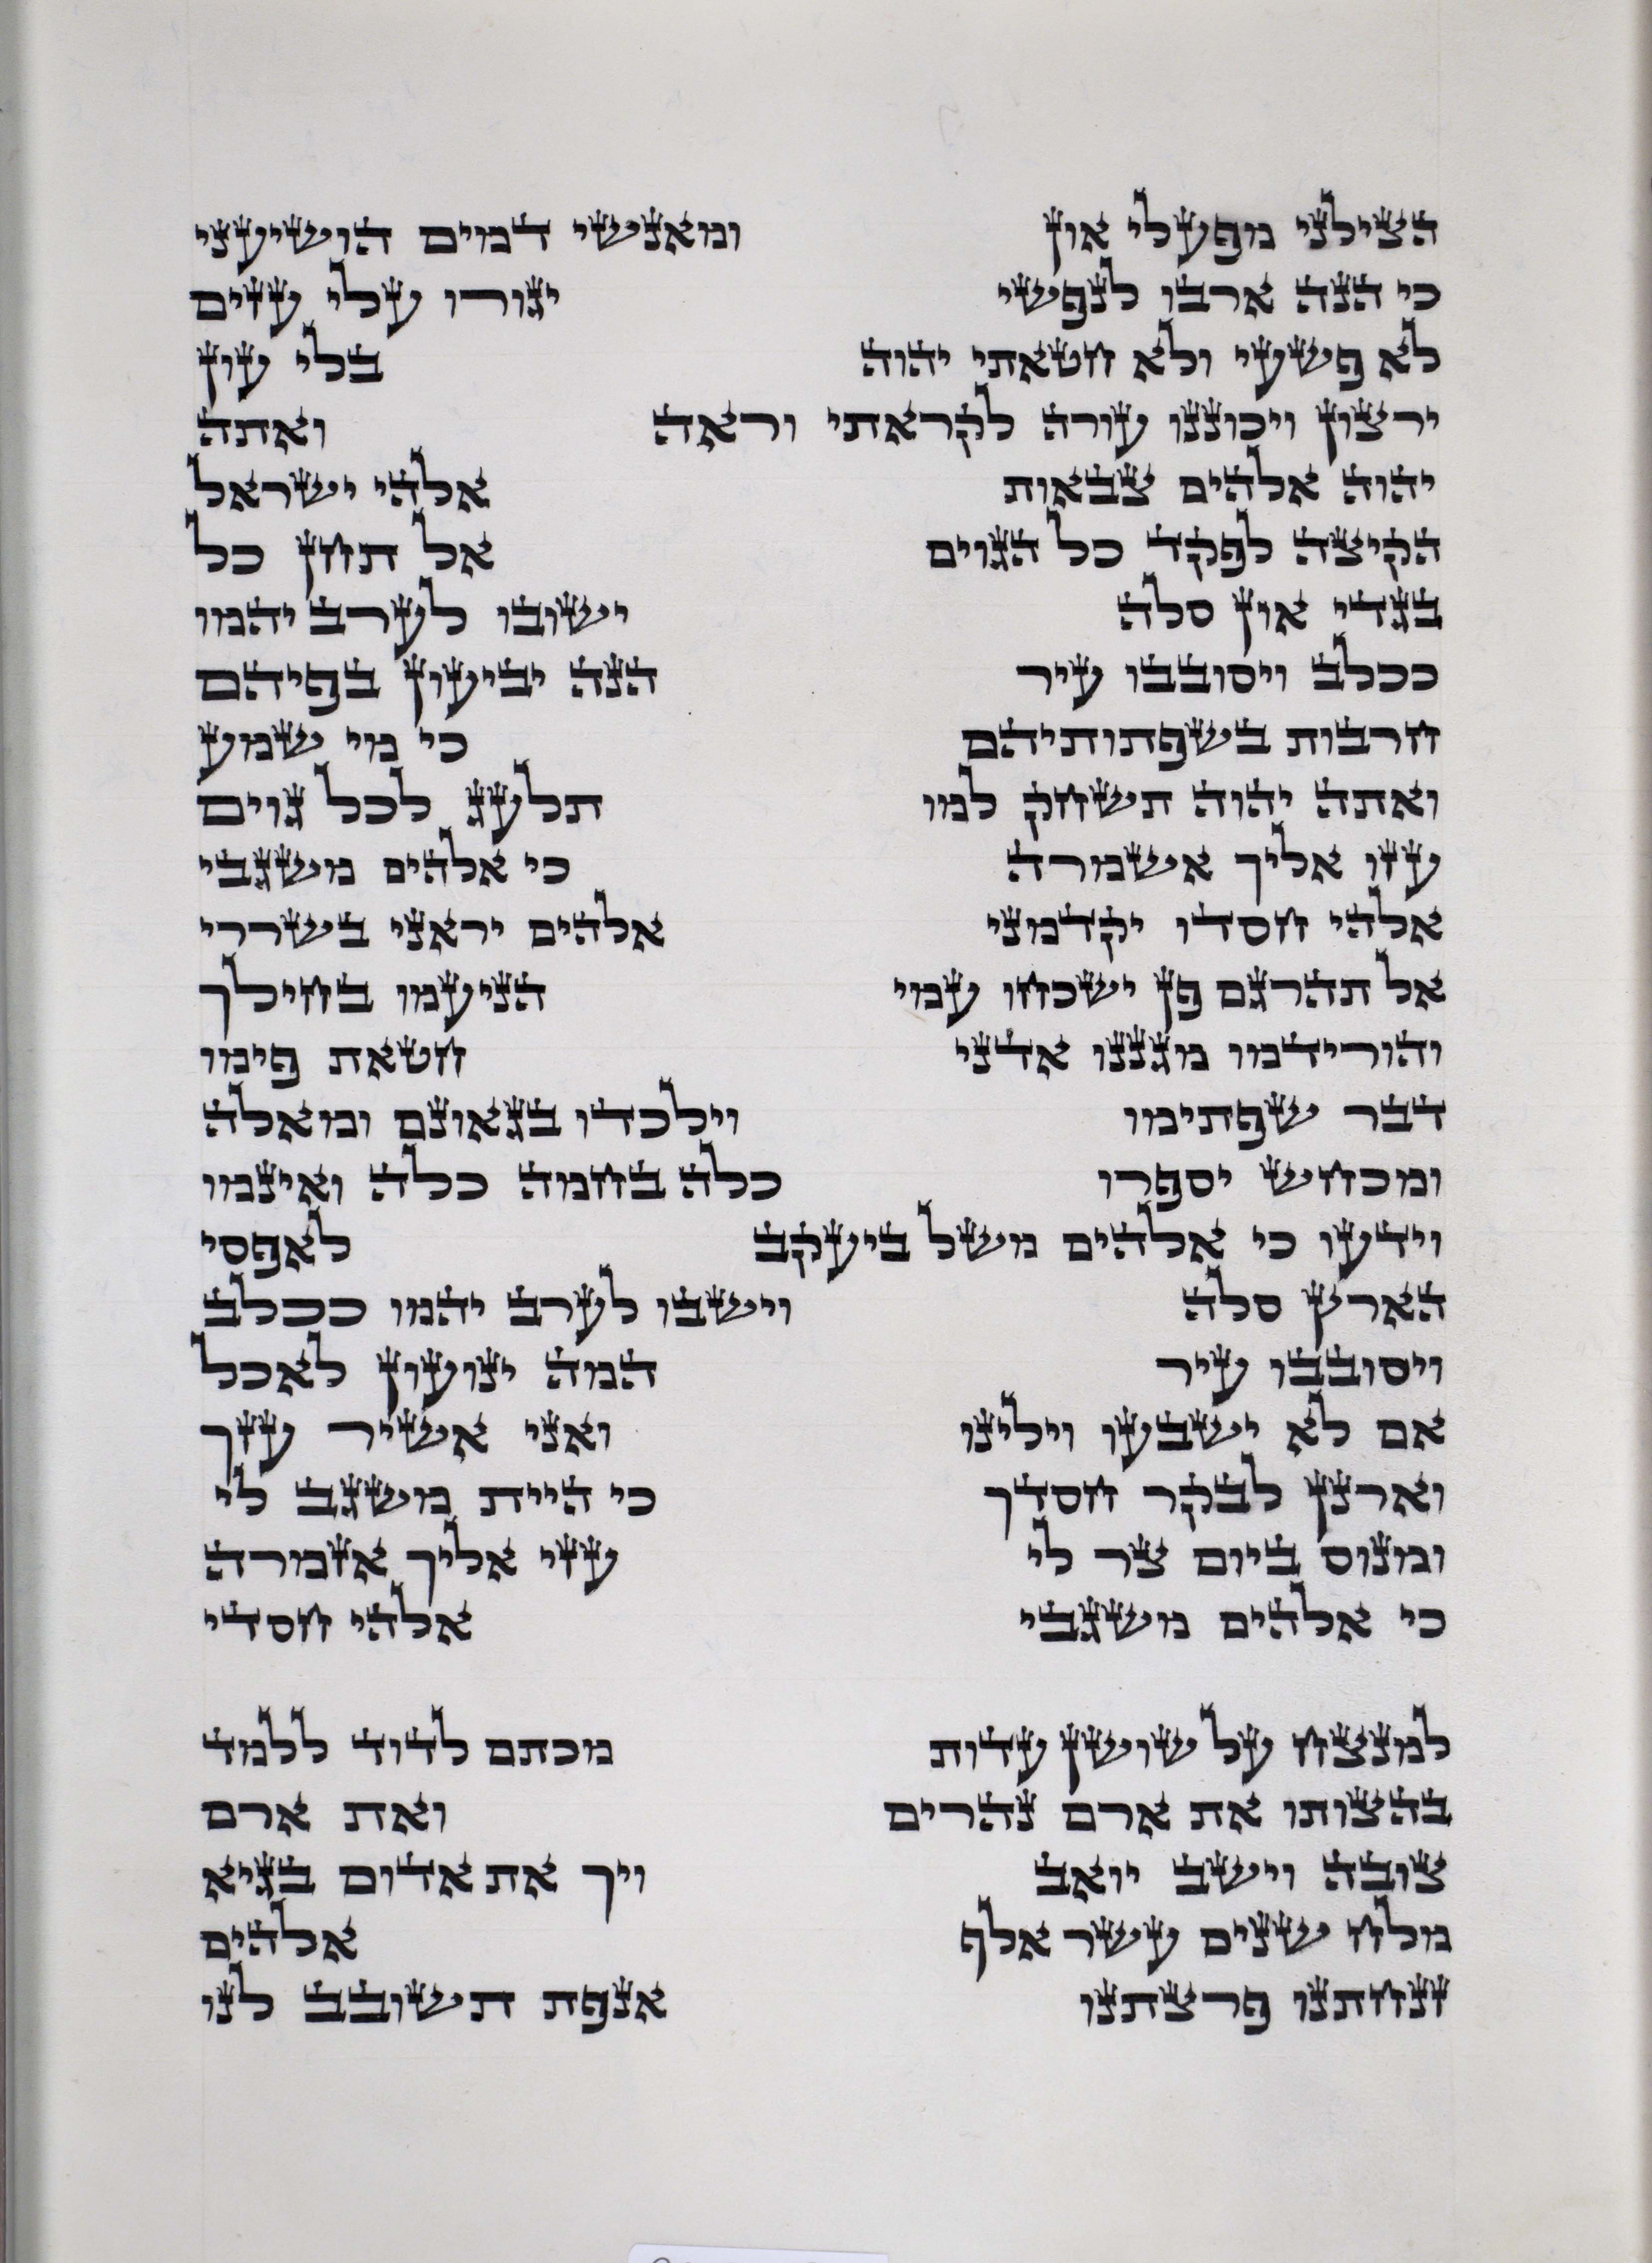 הצילני מפעלי און ומאנשי דמים הושיעני
כי הנה ארבו לנפשי יגורו עלי עזים
לא פשעי ולא חטאתי יהוה בלי עון
ירצון ויכוננו עורה לקראתי וראה ואתה
יהוה אלהים צבאות אלהי ישראל
הקיצה לפקד כל הגוים אל תחן כל
בגדי און סלה ישובו לערב יהמו
ככלב ויסובבו עיר הנה יביעון בפיהם
חרבות בשפתותיהם כי מי שמע
ואתה יהוה תשחק למו תלעג לכל גוים
עזו אליך אשמרה כי אלהים משגבי
אלהי חסדו יקדמני אלהים יראני בשררי
אל תהרגם פן ישכחו עמי הניעמו בחילך
והורידמו מגננו אדני חטאת פימו
דבר שפתימו וילכדו בגאונם ומאלה
ומכחש יספרו כלה בחמה כלה ואינמו
וידעו כי אלהים משל ביעקב לאפסי
הארץ סלה וישבו לערב יהמו ככלב
ויסובבו עיר המה ינועון לאכל
אם לא ישבעו וילינו ואני אשיר עזך
וארנן לבקר חסדך כי היית משגב לי
ומנוס ביום צר לי עזי אליך אזמרה
כי אלהים משגבי אלהי חסדי
למנצח על שושן עדות מכתם לדוד ללמד
בהצותו את ארם נהרים ואת ארם
צובה וישב יואב ויך את אדום בגיא
מלח שנים עשר אלף אלהים
זנחתנו פרצתנו אנפת תשובב לנו